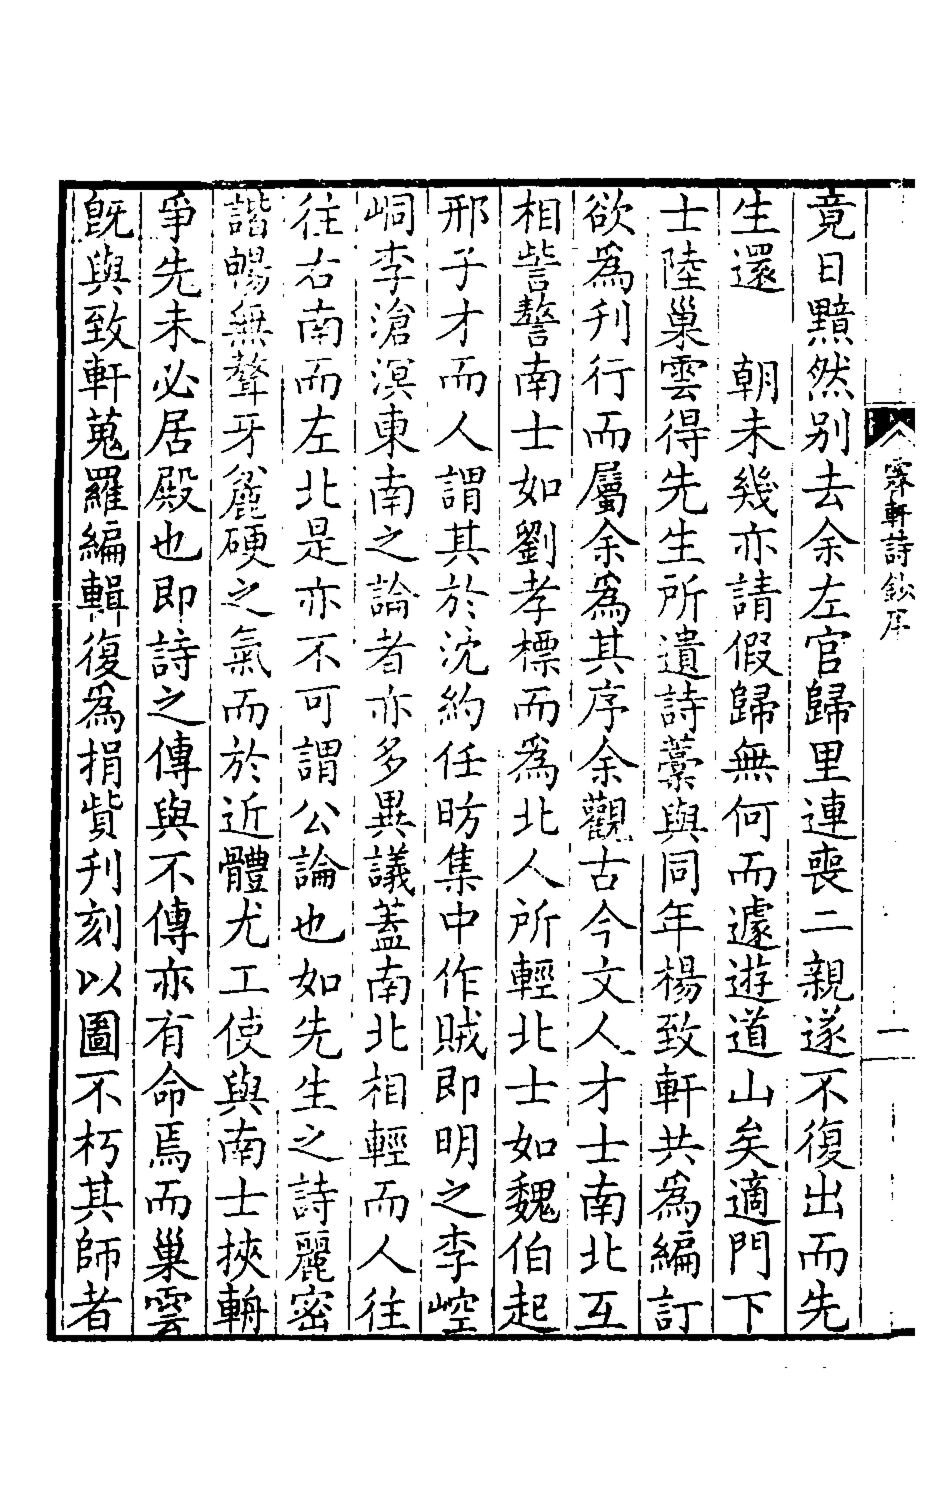 竟日黯然别去余左官歸里連喪二親遂不復出而先
生還　朝未幾亦請假歸無何而遽遊道山矣適門下
士陸巢雲得先生所遺詩藁與同年楊致軒共為編訂
欲為刋行而屬余為其序余觀古今文人才士南北互
相訾謷南士如劉孝標而為北人所輕北士如魏伯起
邢子才而人謂其於沈約任昉集中作賊即明之李崆
峒李滄溟東南之論者亦多異議蓋南北相輕而人徃
徃右南而左北是亦不可謂公論也如先生之詩麗密
諧暢無聱牙麄硬之氣而於近體尤工使與南士挾輈
爭先未必居殿也即詩之傳與不傳亦有命焉而巢雲
旣與致軒蒐羅編輯復為捐貲刋刻以圖不朽其師者
霖軒詩鈔序
一